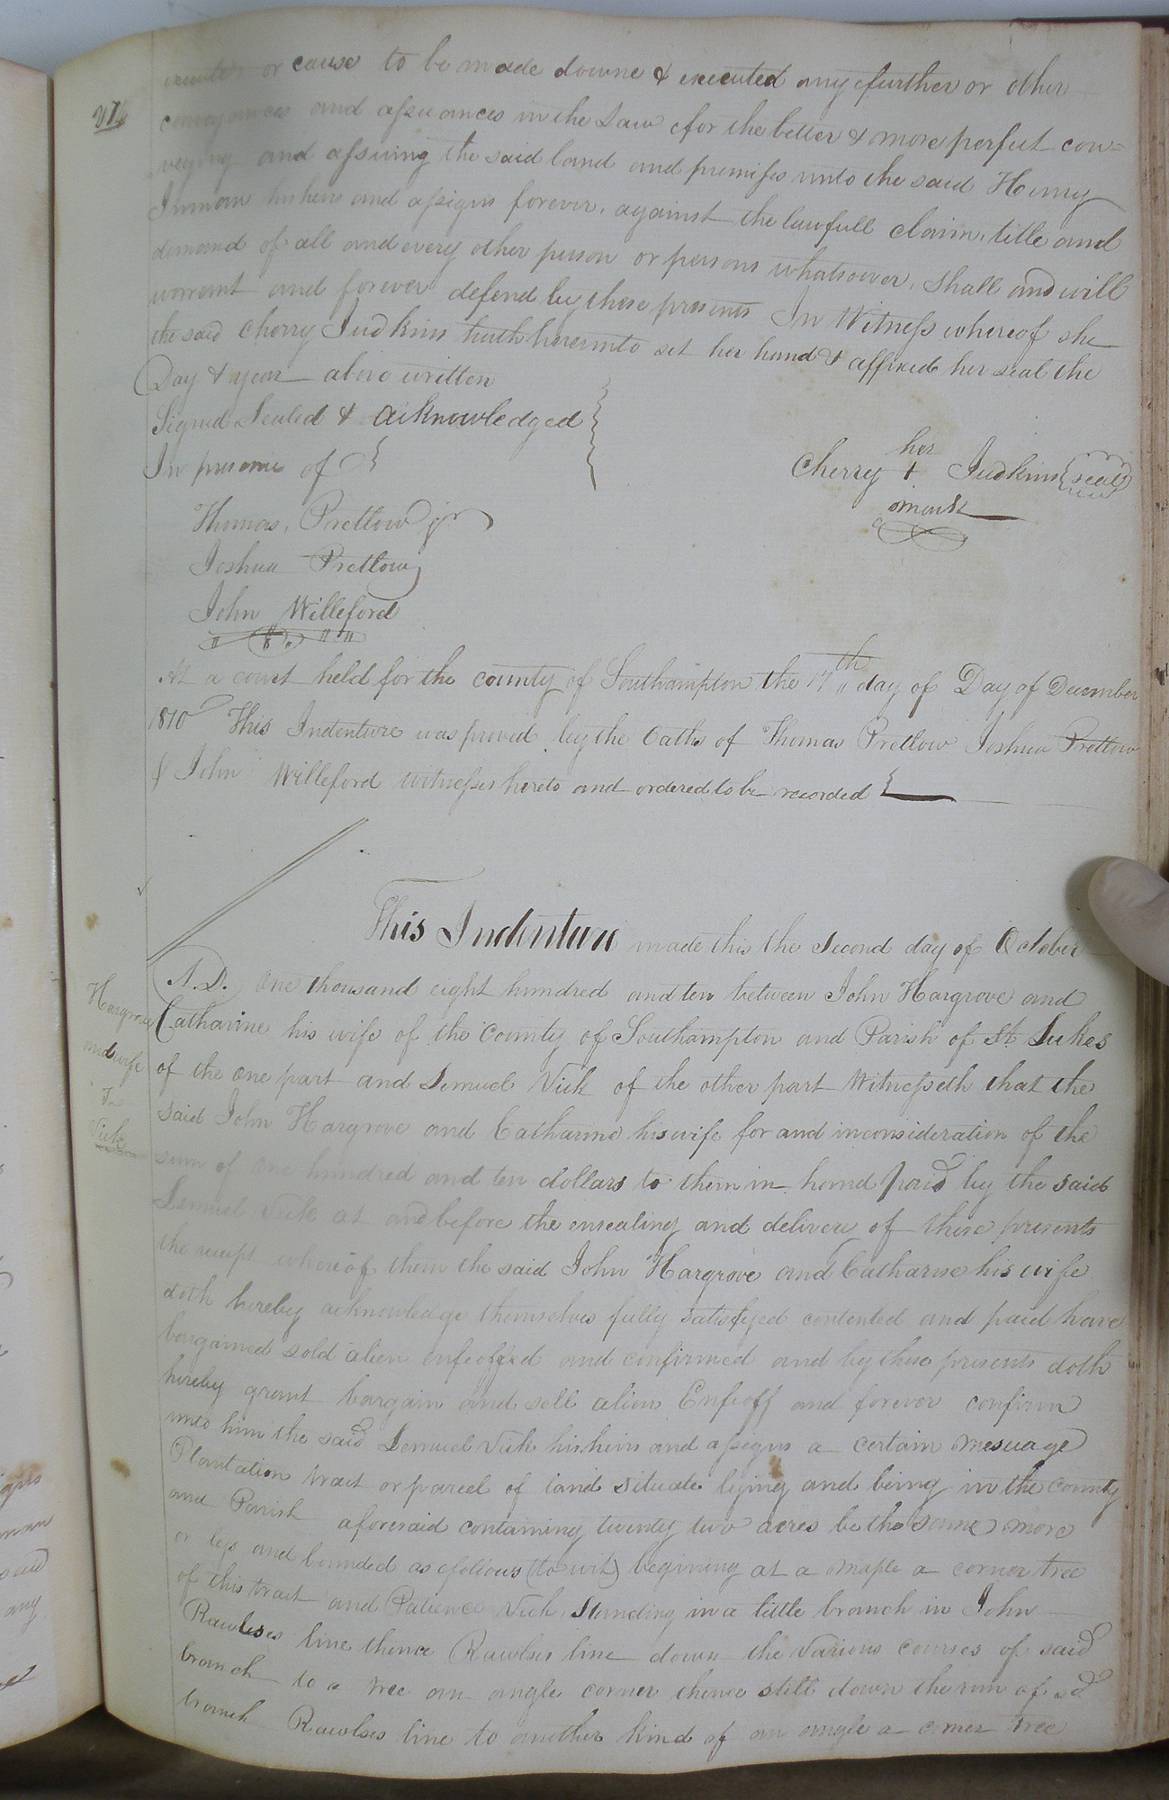 execute or cause to be made downe & executed any further or other
conveyances and assurances in the Law for the better & more perfect con=
veying and assuring the said land and premises unto the said Henry
Inman his heirs and assigns forever, against the lawfull claim, title and
demand of all and every other person or persons whatsoever, shall and will
warrant and forever defend by these presents In Witness whereof she
the said Cherry Judkins hath hereunto set her hand & affixed her seal the
Day & year above written
Signed Sealed & acknowledged
In presence of
her
Cherry + Judkins (seal)
mark
Thomas, Pretlow jr
Joshua Pretlow
John Willeford
At a court held for the county of Southampton the 17th day of Day of December
1810 This Indenture was proved by the Oaths of Thomas Pretlow Joshua Pretlow
& John Willeford witnesses hereto and ordered to be recorded
This Indenture made this the Second day of October
A.D. One thousand eight hundred and ten between John Hargrove and
Hargrove
and wife
To
Vick
Catharine his wife of the County of Southampton and Parish of St Lukes
of the one part and Lemuel Vick of the other part Witnesseth that the
said John Hargrove and Catharine his wife for and inconsideration of the
sum of One hundred and ten dollars to them in hand paid by the said
Lemuel Vick at and before the ensealing and delivery of these presents
the receipt whereof them the said John Hargrove and Catharine his wife
doth hereby acknowledge themselves fully satisfyed contented and paid have
bargained sold alien enfeoffed and confirmed and by these presents doth
hereby grant bargain and sell alien Enfeoff and forever confirm
unto him the said Lemuel Vick his heirs and assigns a certain mesuage
Plantation tract or parcel of land situate lying and being in the County
and Parish aforesaid containing twenty two acres be the same more
or less and bounded as follows (to wit) begining at a maple a corner tree
of this tract and Patience Vick Standing in a little branch in John
Rawlses line thence Rawlses line down the various courses of said
branch to a tree an angle corner thence still down the run of sd
branch Rawlses line to another kind of an angle a corner tree